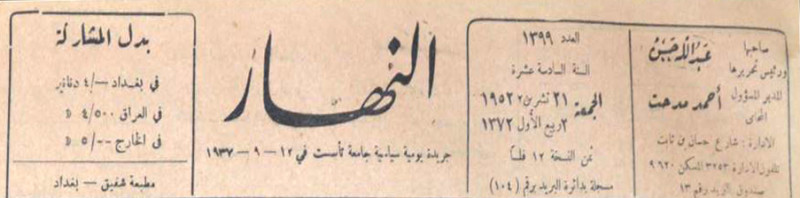 صاحبها
ورئيس تحريرها
عبدالله حسن
المدير المسؤول
المحامي
أحمد مدحت
الادارة : شارع حسان بن ثابت
تلفون الادارة ٣٢٥٣ المسكن ٩٦٢٠
صندوق البريد رقم ١٣
العدد ١٣٩٩
السنة السادسة عشرة
الجمعة
٢١ تشرين ٢ ١٩٥٢
٢ ربيع الأول ١٣٧٢
ثمن النسخة ١٢ فلسا
مسجلة بدائرة البريد برقم (١٠٤)
النهار
جريدة يومية سياسية جامعة تأسست في ١٢ — ٩ — ١٩٣٧
بدل المشاركة
في بغداد —/٤ دنانير
في العراق ٤/٥٠٠ د
في الخارج ٥/٠٠ د
مطبعة شفيق — بغداد